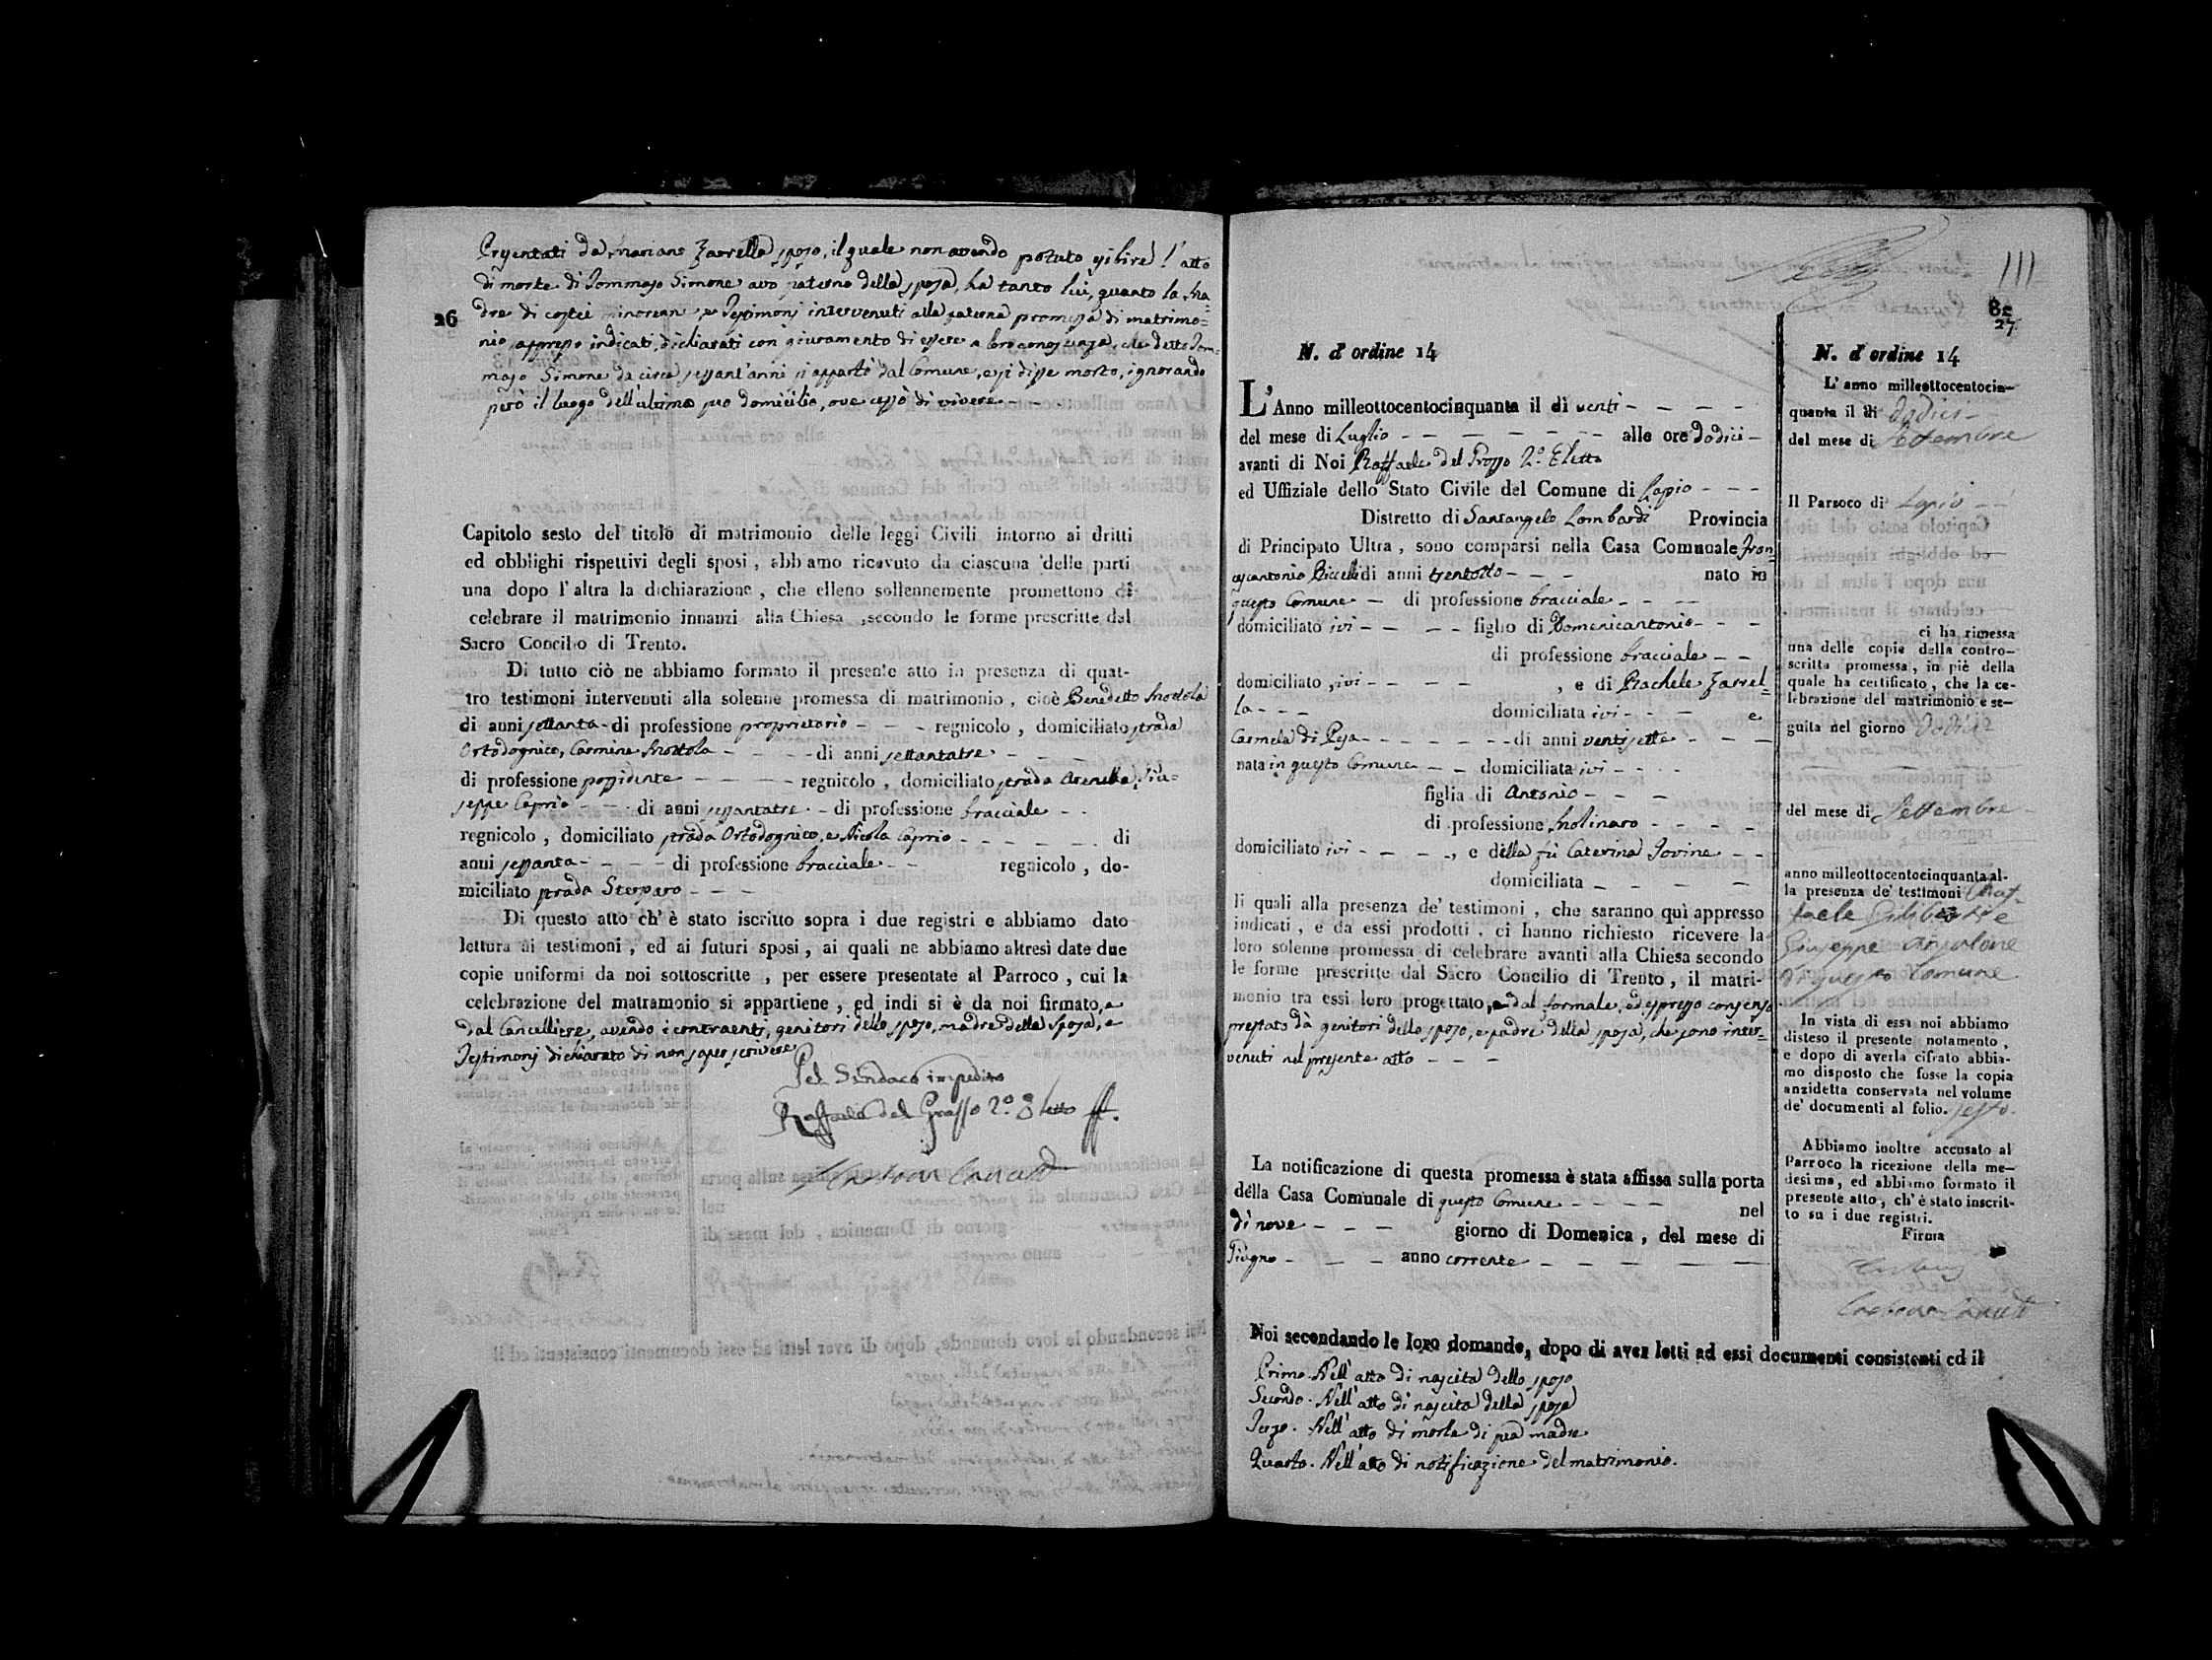 26
Presentati da Mariano Zarrella sposo, il quale non avendo potuto esibire l'atto
di morte di Tommaso Simone avo paterno della sposa, ha tanto lui, quanto la Ma=
dre di costei e Testimonj intervenuti alla promessa di matrimo=
nio appresso indicati, dichiarati con giuramento di essere a loro conoscenza, che detto Tom=
maso Simone da circa sessant'anni si appartò dal Comune, e si disse morto, ignorando
però il luogo dell'ultimo suo domicilio, ove cessò di vivere - - -
Capitolo sesto del titolo di matrimonio delle leggi Civili intorno ai dritti
ed obblighi rispettivi degli sposi, abb amo ricevuto da ciascuna delle parti
una dopo l'altra la dichiarazione, che elleno sollennemente promettono di
celebrare il matrimonio innanzi alla Chiesa, secondo le forme prescritte dal
Sacro Concilio di Trento.
Di tutto ciò ne abbiamo formato il presente atto in presenza di quat-
tro testimoni intervenuti alla solenne promessa di matrimonio, cioè Benedetto Mottola
di anni settanta - di professione proprietario - - - regnicolo, domiciliato strada
Ortodognico, Carmine Mottola - - - - di anni settantatre - - - -
di professione possidente - - - - regnicolo, domiciliato strada Arenella, Giu=
seppe Caprio - - - di anni sessantatre - - di professione bracciale - -
regnicolo, domiciliato strada Ortodognico, e Nicola Caprio - - - - - di
anni sessanta - - - - di professione bracciale - - regnicolo, do-
miciliato strada Sterparo - - -
Di questo atto ch'è stato iscritto sopra i due registri e abbiamo dato
lettura ai testimoni, ed ai futuri sposi, ai quali ne abbiamo altresì date due
copie uniformi da noi sottoscritte, per essere presentate al Parroco, cui la
celebrazione del matramonio si appartiene, ed indi si è da noi firmato, e
dal Cancelliere, avendo i contraenti, genitori dello sposo, madre della sposa, e
Testimonj dichiarato di non saper scrivere
Pel Sindaco impedito
Raffaele del Grosso 2.º Eletto
111
82
27
N. d'ordine 14
L'Anno milleottocentocinquanta il dì venti - - - -
del mese di Luglio - - - - - - - alle ore dodici -
avanti di Noi Raffaele del Grosso 2.º Eletto
ed Uffiziale dello Stato Civile del Comune di Lapio - - -
Distretto di Santangelo Lombardi Provincia
di Principato Ultra, sono comparsi nella Casa Comunale Fran=
cescantonio Ciccelli di anni trentotto - - - nato in
questo Comune - di professione bracciale - - -
domiciliato ivi - - - - figlio di Domenicantonio - - -
di professione bracciale - -
domiciliato, ivi - - - -, e di Rachele Zarrel=
la - - - domiciliata ivi - - - e
Carmela di Pesa - - - - - - di anni ventisette - - -
nata in questo Comune - - domiciliata ivi - - - -
figlia di Antonio - - -
di professione Molinaro - - - -
domiciliato ivi - - - -, e della fù Caterina Iovine - -
domiciliata - - - -
li quali alla presenza de' testimoni, che saranno quì appresso
indicati, e da essi prodotti, ci hanno richiesto ricevere la
loro solenne promessa di celebrare avanti alla Chiesa secondo
le forme prescritte dal Sacro Concilio di Trento, il matri-
monio tra essi loro progettato, e dal formale, ed espresso consenso
prestato dà genitori dello sposo, e padre della sposa, che sono inter=
venuti nel presente atto - - -
La notificazione di questa promessa è stata affissa sulla porta
della Casa Comunale di questo Comune - - - - nel
dì nove - - - giorno di Domenica, del mese di
Giugno - - - anno corrente - - - - - -
Noi secondando le loro domande, dopo di aver letti ad essi documenti consistenti ed il
Primo. Nell'atto di nascita dello sposo
Secondo. Nell'atto di nascita della sposa
Terzo. Nell'atto di morte di sua madre
Quarto. Nell'atto di notificazione del matrimonio.
N. d'ordine 14
L'anno milleottocentocin-
quanta il dì dodici -
del mese di Settembre
Il Parroco di Lapio - -
ci ha rimessa
una delle copie della contro-
scritta promessa, in piè della
quale ha certificato, che la ce-
lebrazione del matrimonio è se-
guita nel giorno Dodici
del mese di Settembre -
anno milleottocentocinquanta al-
la presenza de' testimoni Raf-
faele Giliberti e
Giuseppe
di questo Comune
In vista di essa noi abbiamo
disteso il presente notamento,
e dopo di averla cifrato abbia-
mo disposto che fosse la copia
anzidetta conservata nel volume
de' documenti al folio. sesto.
Abbiamo inoltre accusato al
Parroco la ricezione della me-
desima, ed abbiamo formato il
presente atto, ch'è stato inscrit-
to su i due registri.
Firma